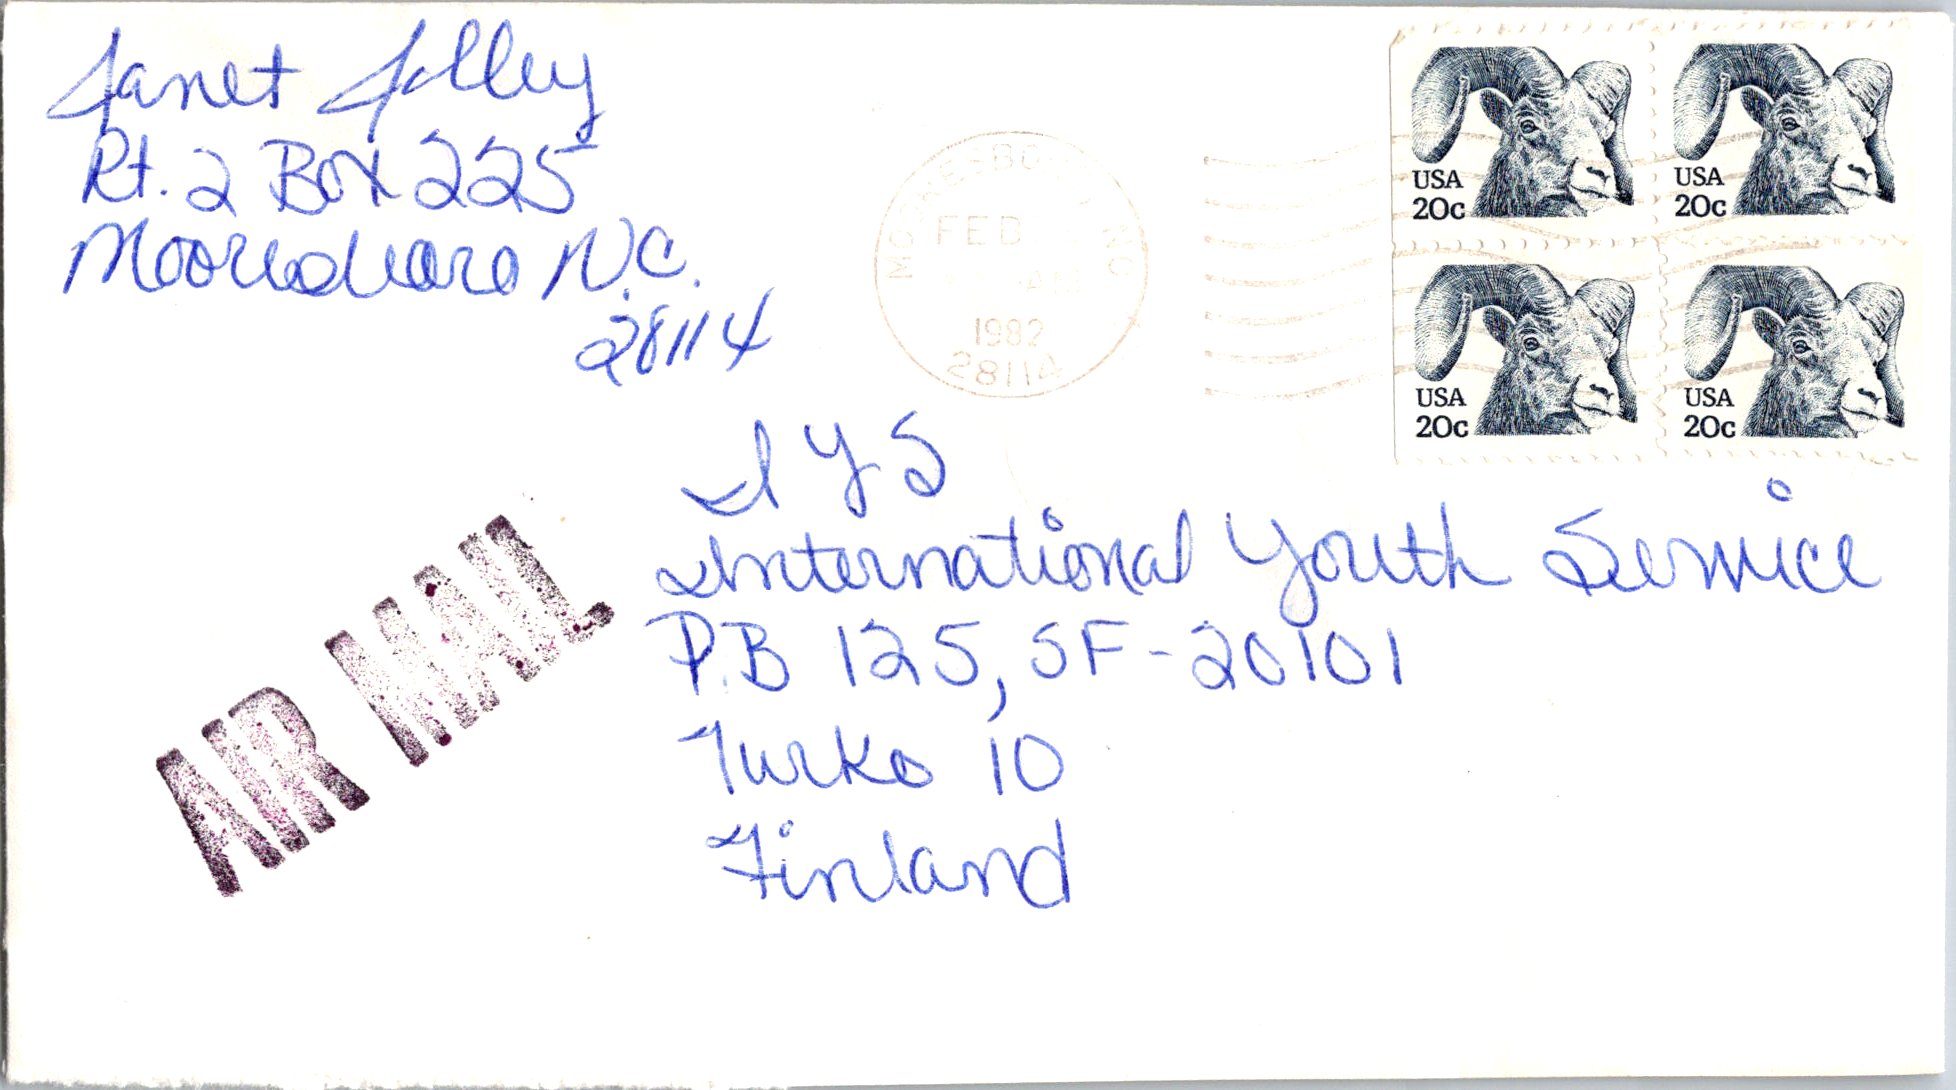 Janet Jolley
Rt. 2 Box 225
Mooresboro N.C.
28114
FEB
AM
1982
28114
USA
20c
USA
20c
USA
20c
USA
20c
I Y S
International Youth Service
P.B 125, SF-20101
Turko 10
Finland
AIR MAIL